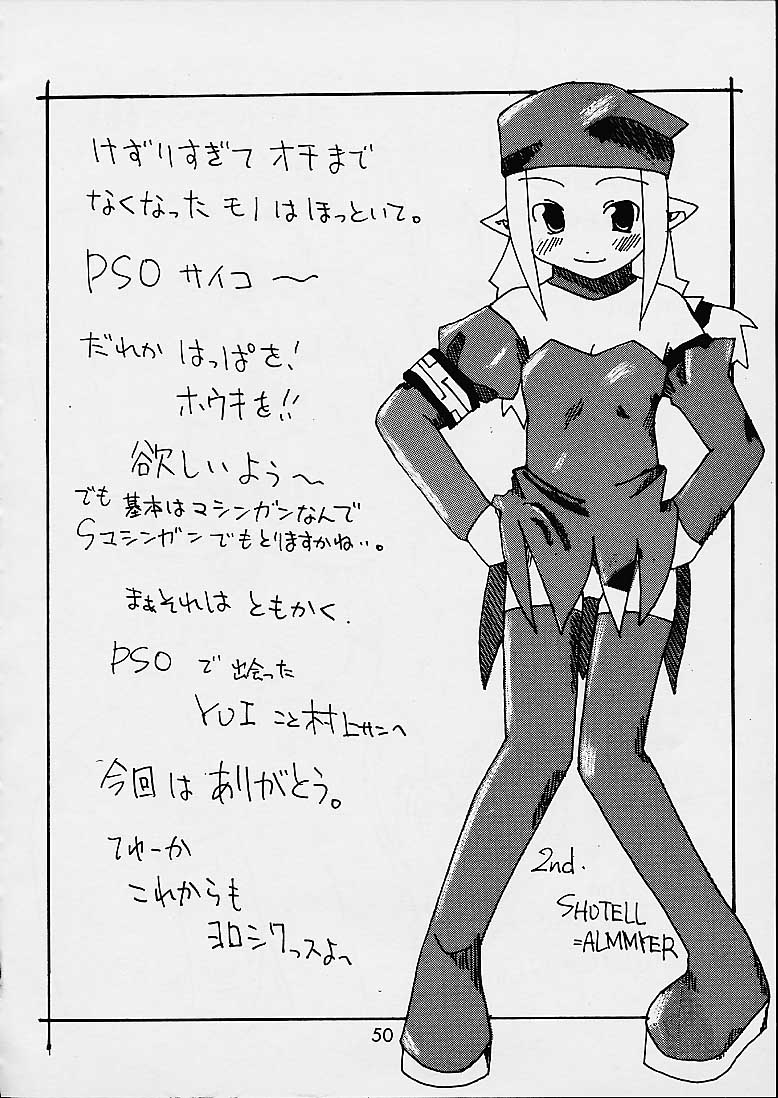 けずりすぎて オチまで
なくなった モノは ほっといて。
PSO サイコ〜
だれか はっぱを!
ホウキを!!
欲しいよう〜
でも 基本は マシンガン なんで
Sマシンガン でも とりますかね…。
まぁ それは ともかく.
PSO で 出会った
YUI こと 村上サンへ
今回は ありがとう。
てゆーか
これからも
ヨロシクっスよへ
2nd.
SHOTELL
=ALMMYER
50